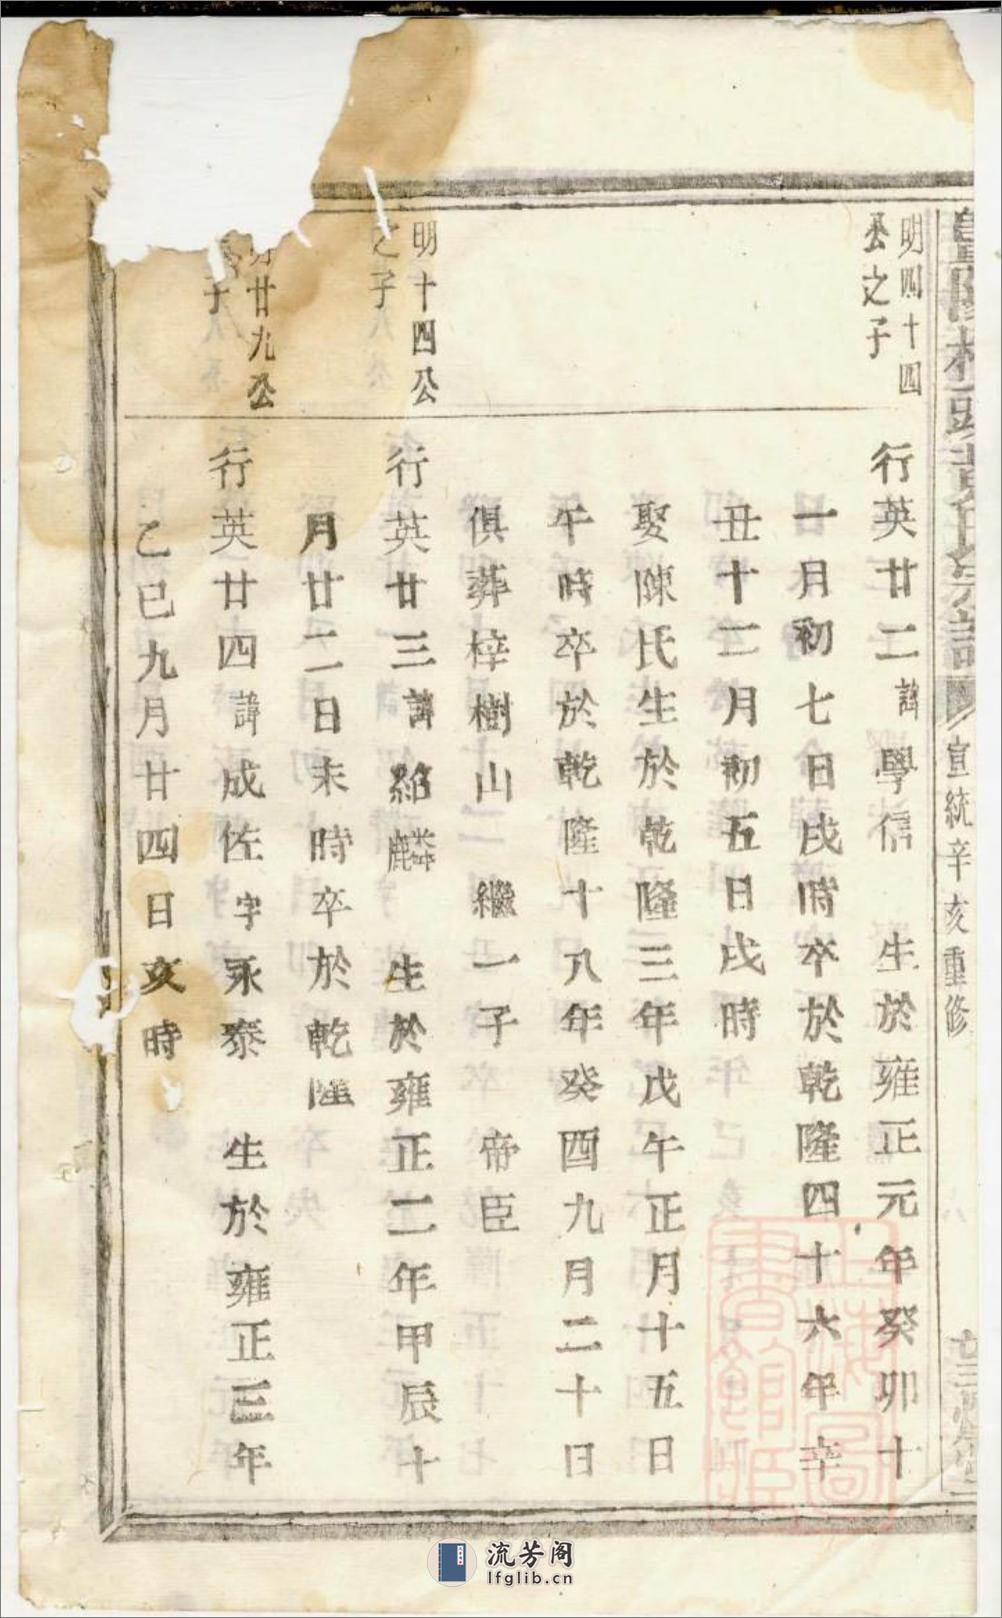 黃氏宗譜
宣統辛亥重修
明四十四
公之子
行英廿二諱學信 生於雍正元年癸卯十
一月初七日戌時卒於乾隆四十六年辛
丑十二月初五日戌時
娶陳氏生於乾隆三年戊午正月十五日
午時卒於乾隆十八年癸酉九月二十日
俱葬梓樹山 繼一子 帝臣
明十四公
之子
行英廿三諱紹麟 生於雍正二年甲辰十
月廿二日未時卒於乾隆
廿九公
子
行英廿四諱成佐字永泰 生於雍正三年
乙巳九月廿四日亥時
上海圖
書館藏
流芳阁
lfglib.cn